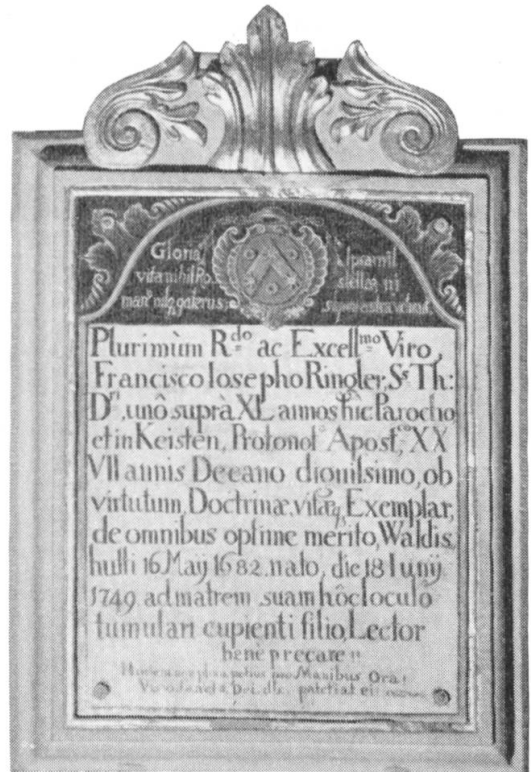 Gloria,
vita nihil
Ipsa nil
stellæ
Plurimùm R.do ac Excell.mo Viro,
Francisco Iosepho Ringler, S.æ Th:
D.ri, unô suprà XL annos hîc Parocho
et in Keisten, Protonot. Apost., XX
VII annis Decano dignissimo, ob
virtutum, Doctrinæ, vitæq; Exemplar,
de omnibus optime merito, Waldis,
hutti 16 Maij 1682 nato, die 18 Iunij
1749 ad matrem suam hôc loculo
tumulari cupienti filio, Lector
benè precare!!
Manibus Ora:
patefiat ei